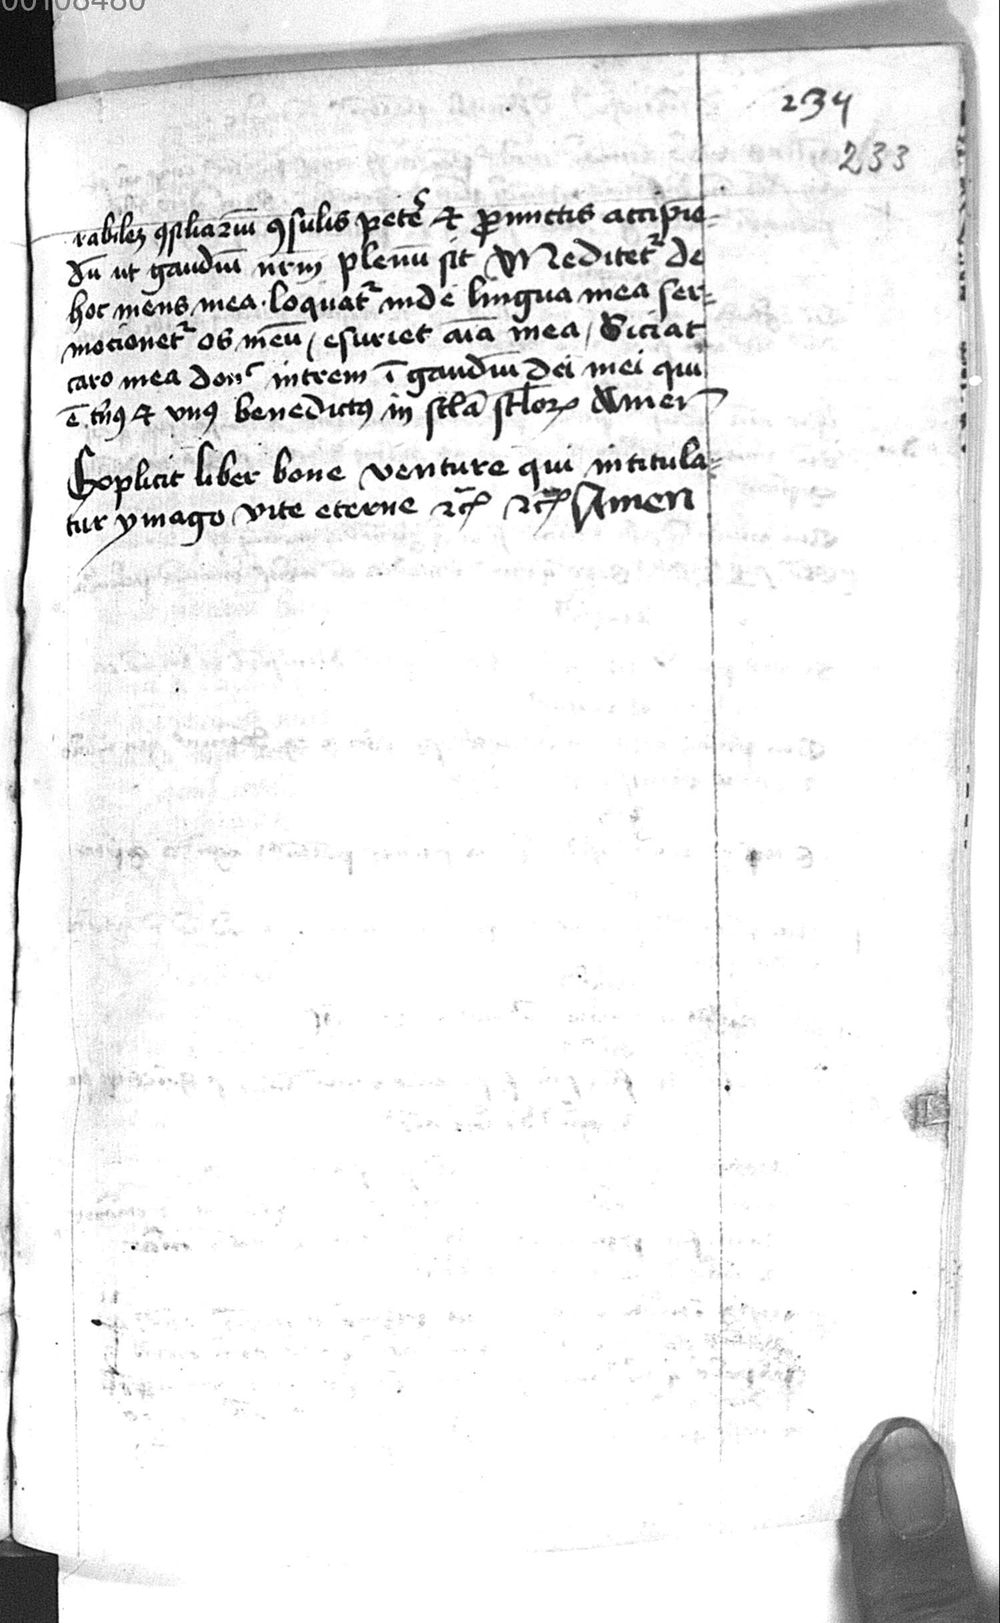 00108480
234
233
rabileꝫ ꝯsiliariū ꝯsulis petē ⁊ ꝓmictis accipie-
dū ut gaudiū nrm̄ plenū sit Meditetr̄ de
hoc mens mea. loquatr̄ inde lingua mea ser-
mocionetr̄ os meū / esuriet aīa mea / Siciat
caro mea donͨ intrem ī gaudiū dei mei qui
ē tn̄ꝰ ⁊ vnꝰ benedictꝰ in sc̄lā sc̄loꝝ Amen
Explicit liber bone venture qui intitula-
tur ymago vite eterne ⁊c̄ ⁊c̄ Amen